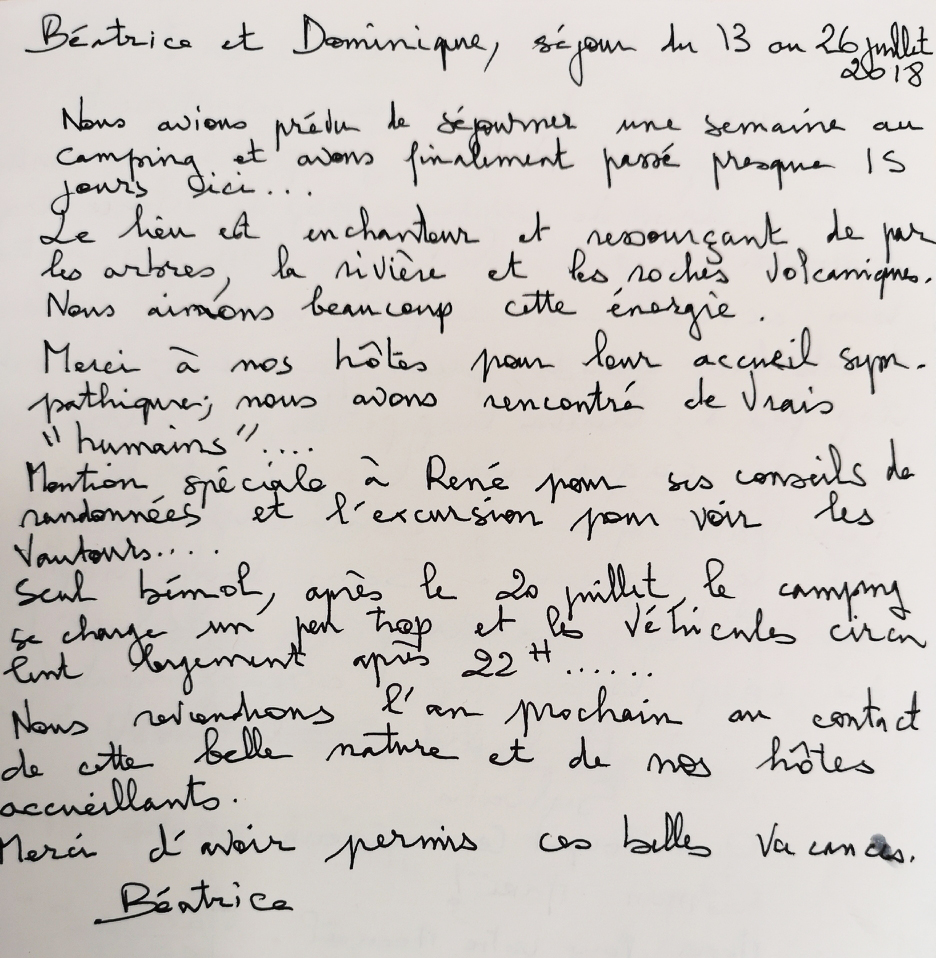 Béatrice et Dominique, séjour du 13 au 26 juillet
2018
Nous avions prévu de séjourner une semaine au
camping et avons finalement passé presque 15
jours ici...
Le lieu est enchanteur et ressourçant de par
les arbres, la rivière et les roches volcaniques.
Nous aimons beaucoup cette énergie.
Merci à nos hôtes pour leur accueil sym-
pathique; nous avons rencontré de vrais
"humains"....
Mention spéciale à René pour ses conseils de
randonnées et l'excursion pour voir les
vautours....
Seul bémol, après le 20 juillet, le camping
se charge un peu trop et les véhicules circu
lent largement après 22H......
Nous reviendrons l'an prochain au contact
de cette belle nature et de nos hôtes
accueillants.
Merci d'avoir permis ces belles vacances.
Béatrice